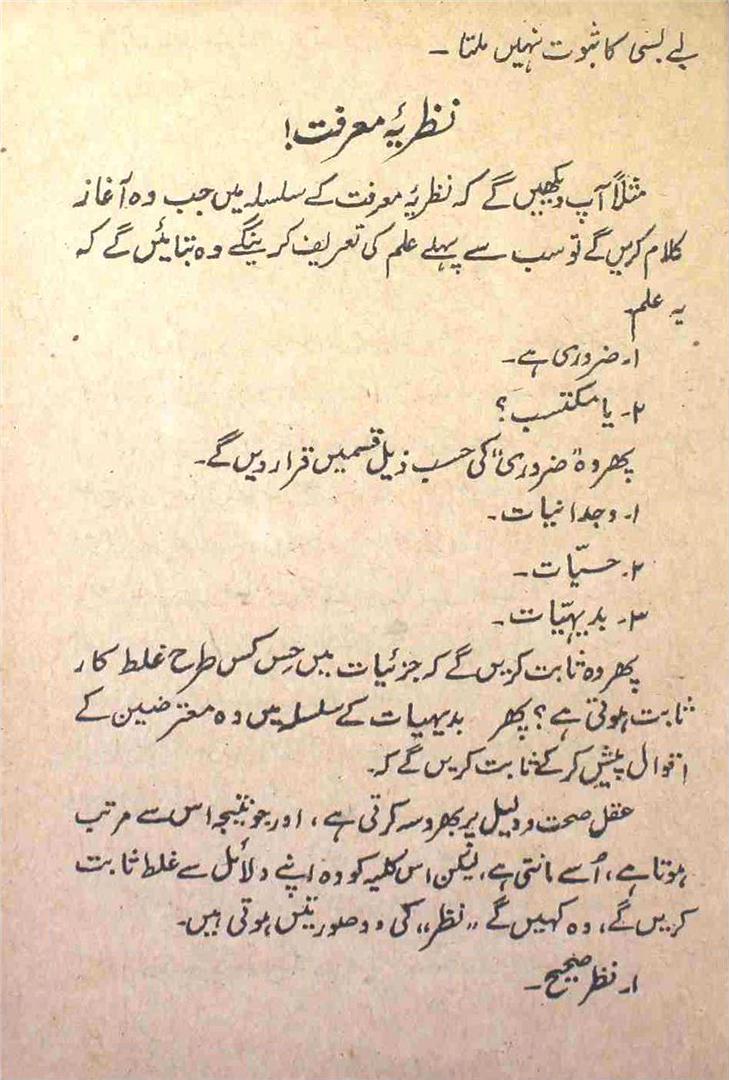 بے بسی کا ثبوت نہیں ملتا ۔
نظریۂ معرفت!
مثلاً آپ دیکھیں گے کہ نظریۂ معرفت کے سلسلہ میں جب وہ آغاز
کلام کریں گے تو سب سے پہلے علم کی تعریف کرینگے وہ بتائیں گے کہ
یہ علم
۱۔ ضروری ہے۔
۲۔ یا مکتسب؟
پھر وہ "ضروری" کی حسب ذیل قسمیں قرار دیں گے۔
۱۔ وجدانیات ۔
۲۔ حسیّات ۔
۳۔ بدیہیّات ۔
پھر وہ ثابت کریں گے کہ جزئیات میں حِس کس طرح غلط کار
ثابت ہوتی ہے؟ پھر بدیہیات کے سلسلہ میں وہ معترضین کے
اقوال پیش کر کے ثابت کریں گے کہ۔
عقل صحت و دلیل پر بھروسہ کرتی ہے، اور جو نتیجہ اس سے مرتب
ہوتا ہے، اُسے مانتی ہے، لیکن اس کلیہ کو وہ اپنے دلائل سے غلط ثابت
کریں گے، وہ کہیں گے "نظر" کی دو صورتیں ہوتی ہیں۔
۱۔ نظر صحیح ۔